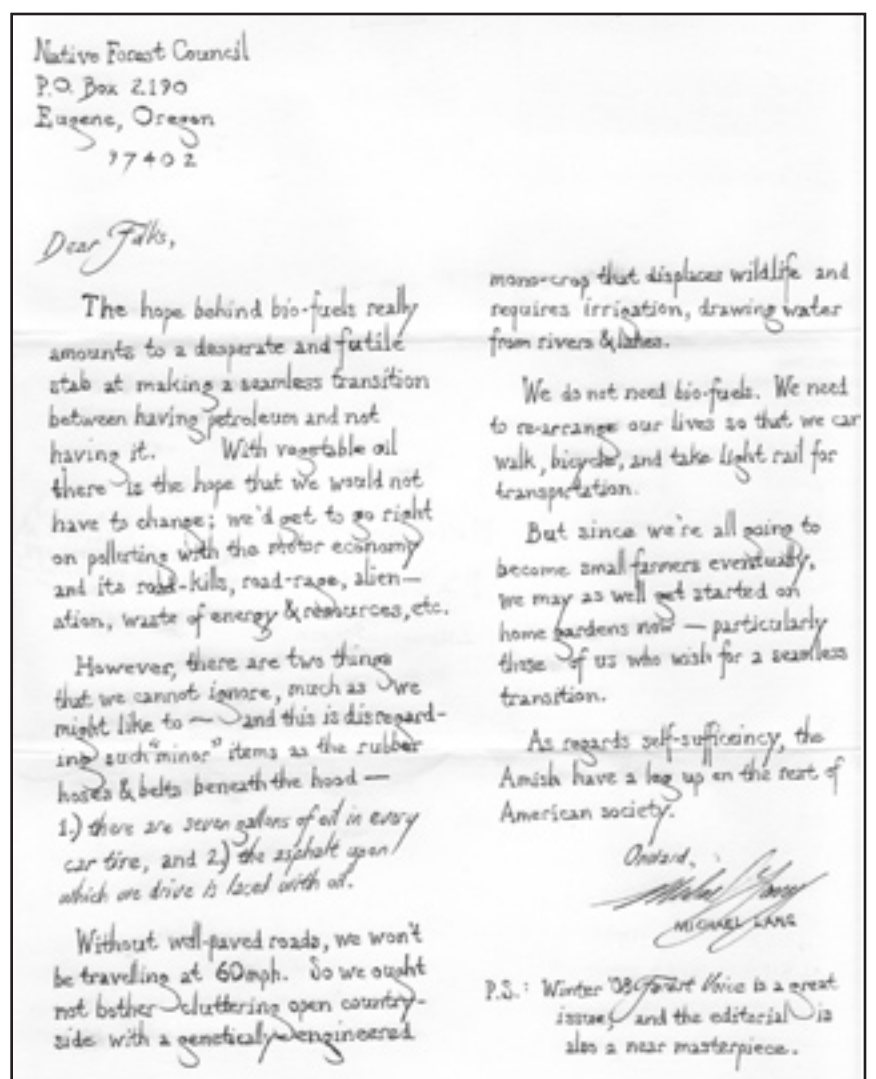 Native Forest Council
P.O. Box 2190
Eugene, Oregon
97402
Dear Folks,
The hope behind bio-fuels really
amounts to a desperate and futile
stab at making a seamless transition
between having petroleum and not
having it. With vegetable oil
there is the hope that we would not
have to change; we'd get to go right
on polluting with the motor economy
and its road-kills, road-rage, alien-
ation, waste of energy & resources, etc.
However, there are two things
that we cannot ignore, much as we
might like to — and this is disregard-
ing such "minor" items as the rubber
hoses & belts beneath the hood —
1.) there are seven gallons of oil in every
car tire, and 2.) the asphalt upon
which we drive is laced with oil.
Without well-paved roads, we won't
be travelling at 60mph. So we ought
not bother cluttering open country-
side with a genetically-engineered
mono-crop that displaces wildlife and
requires irrigation, drawing water
from rivers & lakes.
We do not need bio-fuels. We need
to re-arrange our lives so that we can
walk, bicycle, and take light rail for
transportation.
But since we're all going to
become small farmers eventually,
we may as well get started on
home gardens now — particularly
those of us who wish for a seamless
transition.
As regards self-sufficiency, the
Amish have a leg up on the rest of
American society.
Onward,
MICHAEL LANG
P.S.: Winter '08 Forest Voice is a great
issue, and the editorial is
also a near masterpiece.